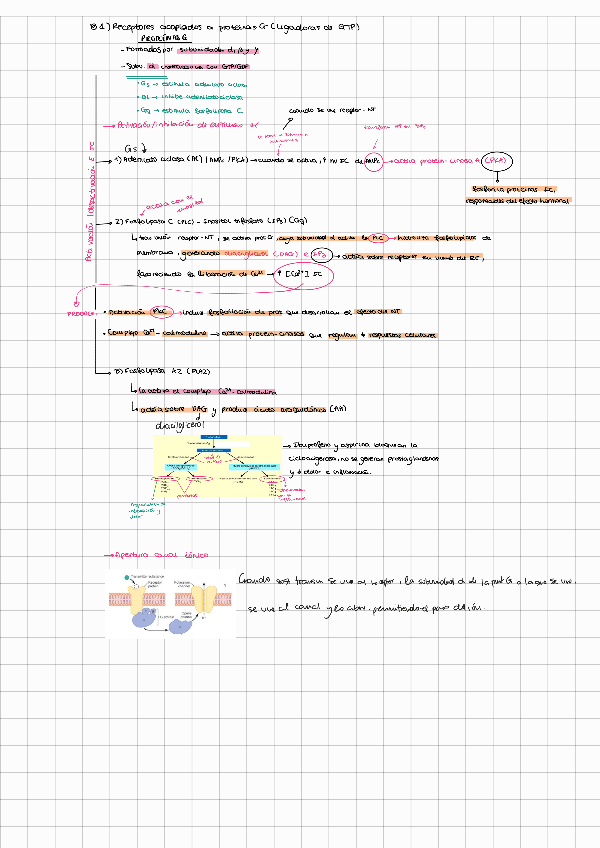 B1) Receptores acoplados a proteínas G (ligadoras de GTP)
PROTEÍNAS G
- Formados por subunidades α, β y γ
- Subu. α interacciona con GTP/GDP
• Gs → estimula adenilato ciclasa
• Gi → inhibe adenilato ciclasa
• Gq → estimula fosfolipasa C
→ Activación/inhibición de
cuando se une receptor-NT
Gs
1) Adenilato ciclasa (AC) (AMPc/PKA) → cuando se activa, ↑ nv IC de AMPc → activa protein-cinasa A (PKA)
fosforila proteínas IC,
responsables del efecto hormonal
2) Fosfolipasa C (PLC) - Inositol trifosfato (IP3) (Gq)
↳ tras unión receptor-NT, se activa prot G, cuya subunidad α activa la PLC → hidroliza fosfolípidos de
membrana, generando diacilglicerol (DAG) e IP3 → actúa sobre receptores en memb del RE,
favoreciendo la liberación de Ca²⁺ → ↑ [Ca²⁺] IC
PRODUCE
• Activación PKC → induce fosforilación de prot que desarrollan el efecto del NT
• Complejo Ca²⁺-calmodulina → activa protein-cinasas que regulan ≠ respuestas celulares
3) Fosfolipasa A2 (PLA2)
↳ la activa el complejo Ca²⁺-calmodulina
↳ actúa sobre DAG y produce ácido araquidónico (AA)
diacilglicerol
→ Ibuprofeno y aspirina bloquean la
ciclooxigenasa, no se generan prostaglandinas
y ↓ dolor e inflamación.
→ Apertura canal iónico
Transmitter substance
Receptor protein
Cuando sust transm se une al receptor, la subunidad α de la prot G a la que se une,
se une al canal y lo abre, permitiendo el paso del ión.